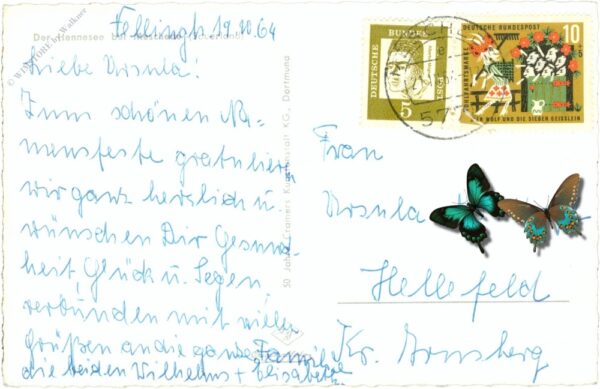 Der Hennesee bei Meschede (Sauerland)
© WINSTORE by Walkner
19.10.64
Liebe Ursula!
Zum schönen Na-
mensfeste gratulieren
wir ganz herzlich u.
wünschen Dir Gesund-
heit, Glück u. Segen,
verbunden mit vielen
Grüßen an die ganze Familie
die beiden Wilhelms + Elisabeth
50 Jahre Cramers Kunstanstalt KG., Dortmund
DEUTSCHE BUNDES POST
5
DEUTSCHE BUNDESPOST
10
+5
WOHLFAHRTSMARKE
DER WOLF UND DIE SIEBEN GEISSLEIN
577
Frau
Ursula
Hellefeld
Kr. Arnsberg